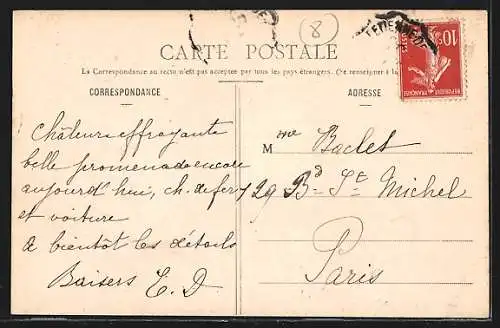 8
CARTE POSTALE
La Correspondance au recto n'est pas acceptée par tous les pays étrangers. (Se renseigner à la
CORRESPONDANCE
ADRESSE
Châleur effrayante
belle promenade encore
aujourd'hui, ch. de fer
et voiture
à bientôt les détails
Baisers E. D
Mme Baclet
29 Bd St Michel
Paris
10c
POSTES
REPUBLIQUE FRANÇAISE